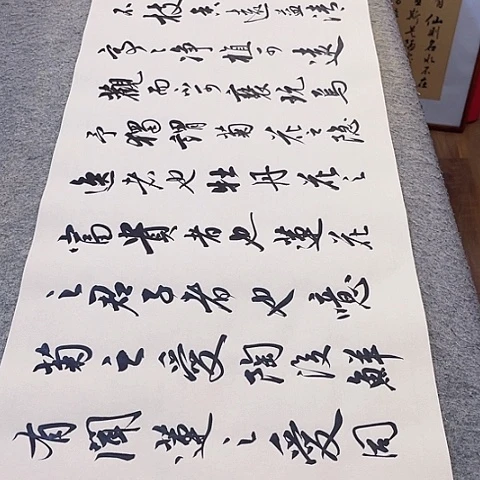 不枝香遠益清
亭亭净植可遠
觀而不可褻玩焉
予獨謂菊花之隱
逸者也牡丹花之
富貴者也蓮花
之君子者也噫
菊之愛陶後鮮
有聞蓮之愛同
仙則名水不在